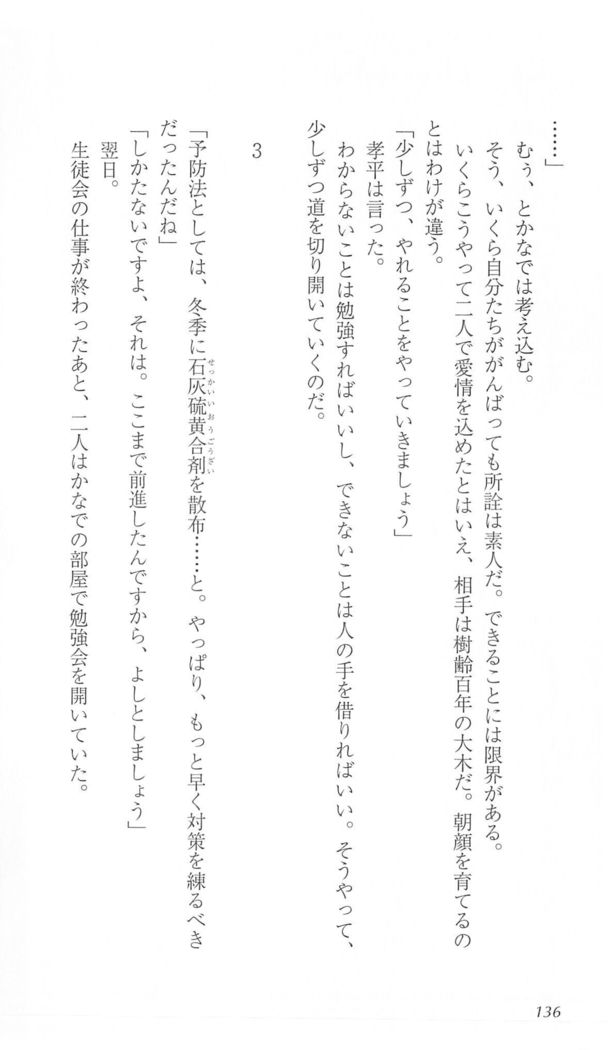 ……」
むぅ、とかなでは考え込む。
そう、いくら自分たちががんばっても所詮は素人だ。できることには限界がある。
いくらこうやって二人で愛情を込めたとはいえ、相手は樹齢百年の大木だ。朝顔を育てるの
とはわけが違う。
「少しずつ、やれることをやっていきましょう」
孝平は言った。
わからないことは勉強すればいいし、できないことは人の手を借りればいい。そうやって、
少しずつ道を切り開いていくのだ。
3
「予防法としては、冬季に石灰硫黄合剤を散布……と。やっぱり、もっと早く対策を練るべき
せっかいいおうごうざい
だったんだね」
「しかたないですよ、それは。ここまで前進したんですから、よしとしましょう」
翌日。
生徒会の仕事が終わったあと、二人はかなでの部屋で勉強会を開いていた。
136